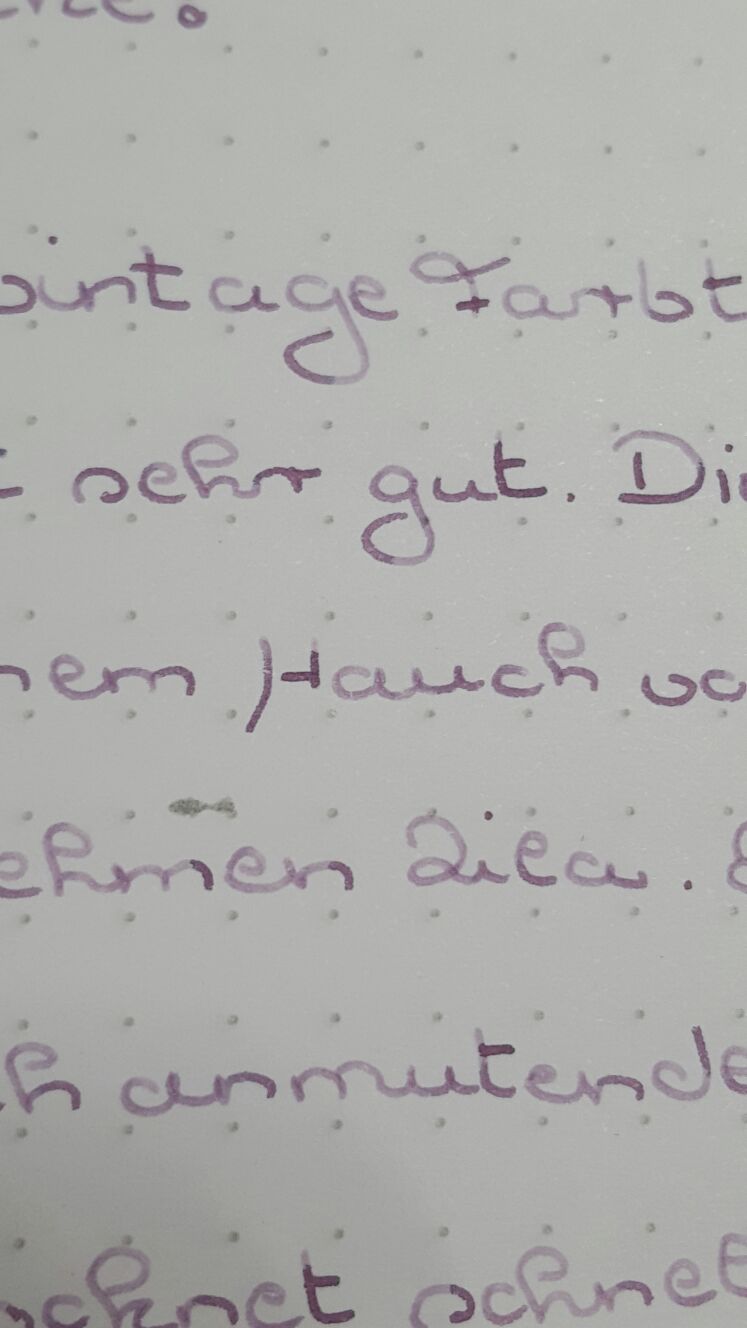 vintage Farbt
sehr gut. Die
nem Hauch vo
ehmen Lila. E
ch anmutende
ocknet schnel